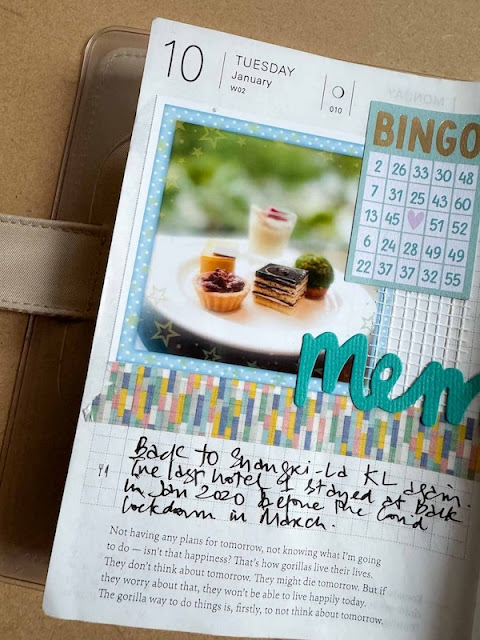 10
TUESDAY
January
W02
010
MONDAY
BINGO
2 26 33 30 48
7 31 25 43 60
13 45 51 52
6 24 28 49 49
22 37 37 32 55
mem
Back to Shangri-La KL again.
The last hotel I stayed at back
in Jan 2020 before the Covid
lockdown in March.
Not having any plans for tomorrow, not knowing what I'm going
to do — isn't that happiness? That's how gorillas live their lives.
They don't think about tomorrow. They might die tomorrow. But if
they worry about that, they won't be able to live happily today.
The gorilla way to do things is, firstly, to not think about tomorrow.